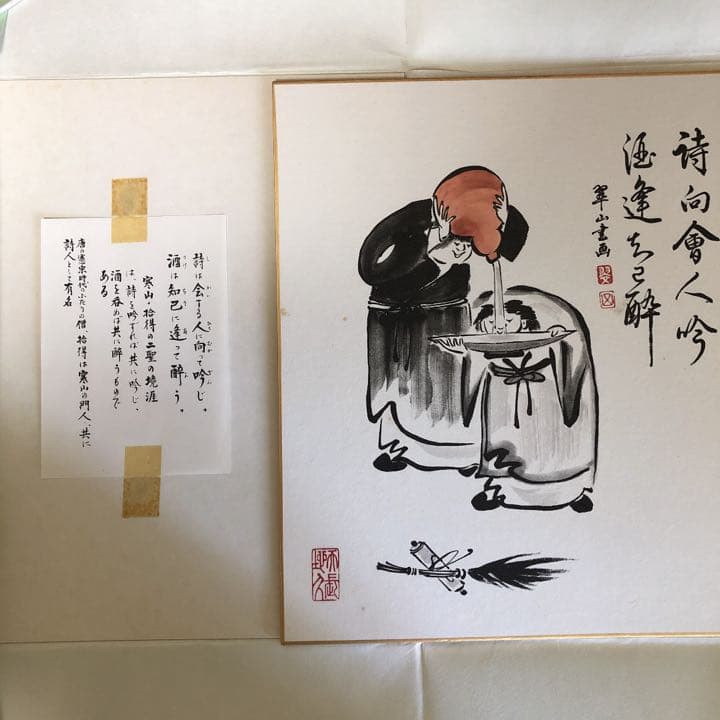 詩向會人吟
酒逢知己酔
翠山書画
詩は会する人に向って吟じ。
酒は知己に逢って酔う。
寒山・拾得の二聖の境涯
は、詩を吟ずれば共に吟じ、
酒を呑めば共に酔うもので
ある
唐の憲宗時代のふたりの僧、拾得は寒山の門人、共に
詩人として有名